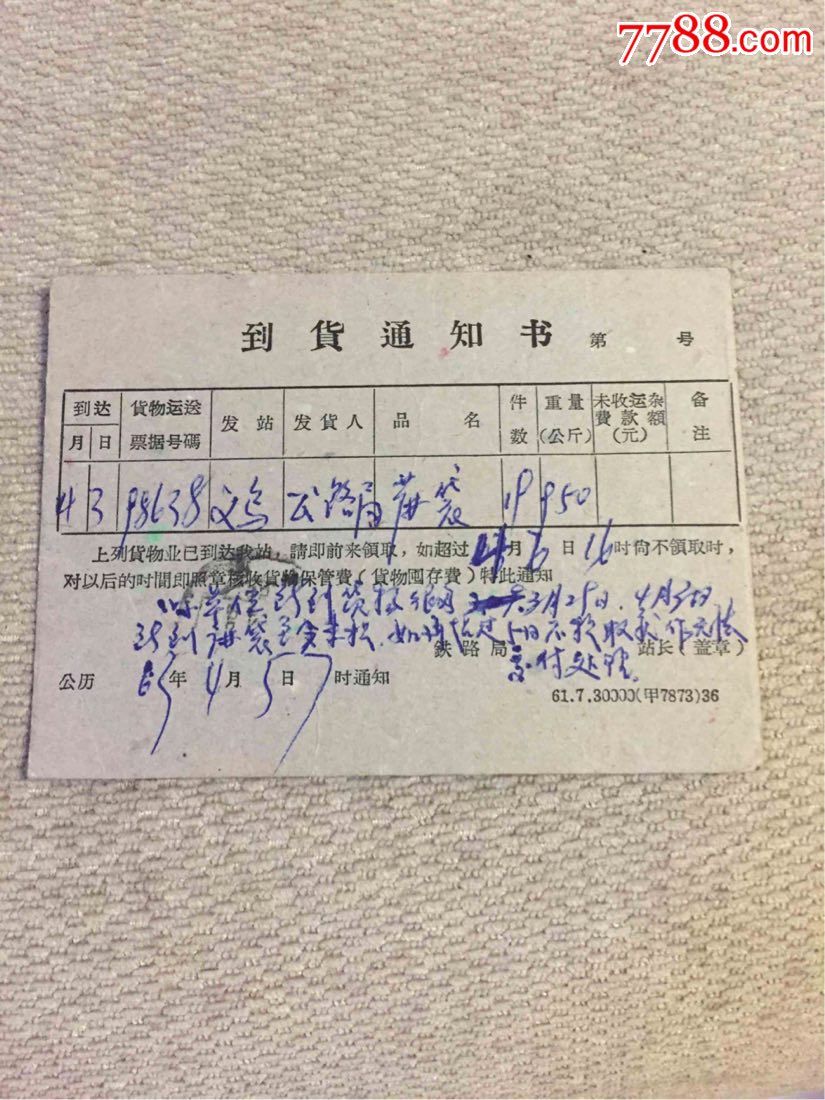 7788.com
到貨通知书 第 号
到达 貨物运送 发站 发貨人 品名 件 重量 未收运杂 备
月 日 票据号碼 数 (公斤) 費款額 注
(元)
4 3 98638 义乌 公路局 麻袋 19 950
上列貨物业已到达我站，請即前来領取，如超过 4月6日16时尙不領取时，
对以后的时間即照章核收貨物保管費(貨物囤存費)特此通知
3月29日. 4月3日
到 麻袋 未 5日不 取
鉄路局 站长(盖章)
付处理.
公历 65年4月5日7时通知
61.7.30000(甲7873)36